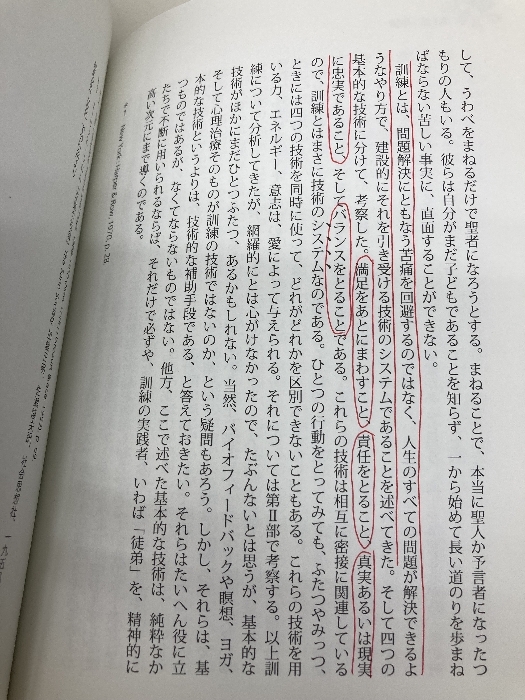 して、うわべをまねるだけで聖者になろうとする。まねることで、本当に聖人か予言者になったつ
もりの人もいる。彼らは自分がまだ子どもであることを知らず、一から始めて長い道のりを歩まね
ばならない苦しい事実に、直面することができない。
訓練とは、問題解決にともなう苦痛を回避するのではなく、人生のすべての問題が解決できるよ
うなやり方で、建設的にそれを引き受ける技術のシステムであることを述べてきた。そして四つの
基本的な技術に分けて、考察した。満足をあとにまわすこと、責任をとること、真実あるいは現実
に忠実であること、そしてバランスをとることである。これらの技術は相互に密接に関連している
ので、訓練とはまさに技術のシステムなのである。ひとつの行動をとってみても、ふたつやみっつ、
ときには四つの技術を同時に使って、どれがどれかを区別できないこともある。これらの技術を用
いる力、エネルギー、意志は、愛によって与えられる。それについては第Ⅱ部で考察する。以上訓
練について分析してきたが、網羅的にとは心がけなかったので、たぶんないとは思うが、基本的な
技術がほかにまだひとつふたつ、あるかもしれない。当然、バイオフィードバックや瞑想、ヨガ、
そして心理治療そのものが訓練の技術ではないのか、という疑問もあろう。しかし、それらは、基
本的な技術というよりは、技術的な補助手段である、と答えておきたい。それらはたいへん役に立
つものではあるが、なくてならないものではない。他方、ここで述べた基本的な技術は、純粋なか
たちで不断に用いられるならば、それだけで必ずや、訓練の実践者、いわば「徒弟」を、精神的に
高い次元にまで導くのである。
New York: Harper & Row, 1970, p. 28